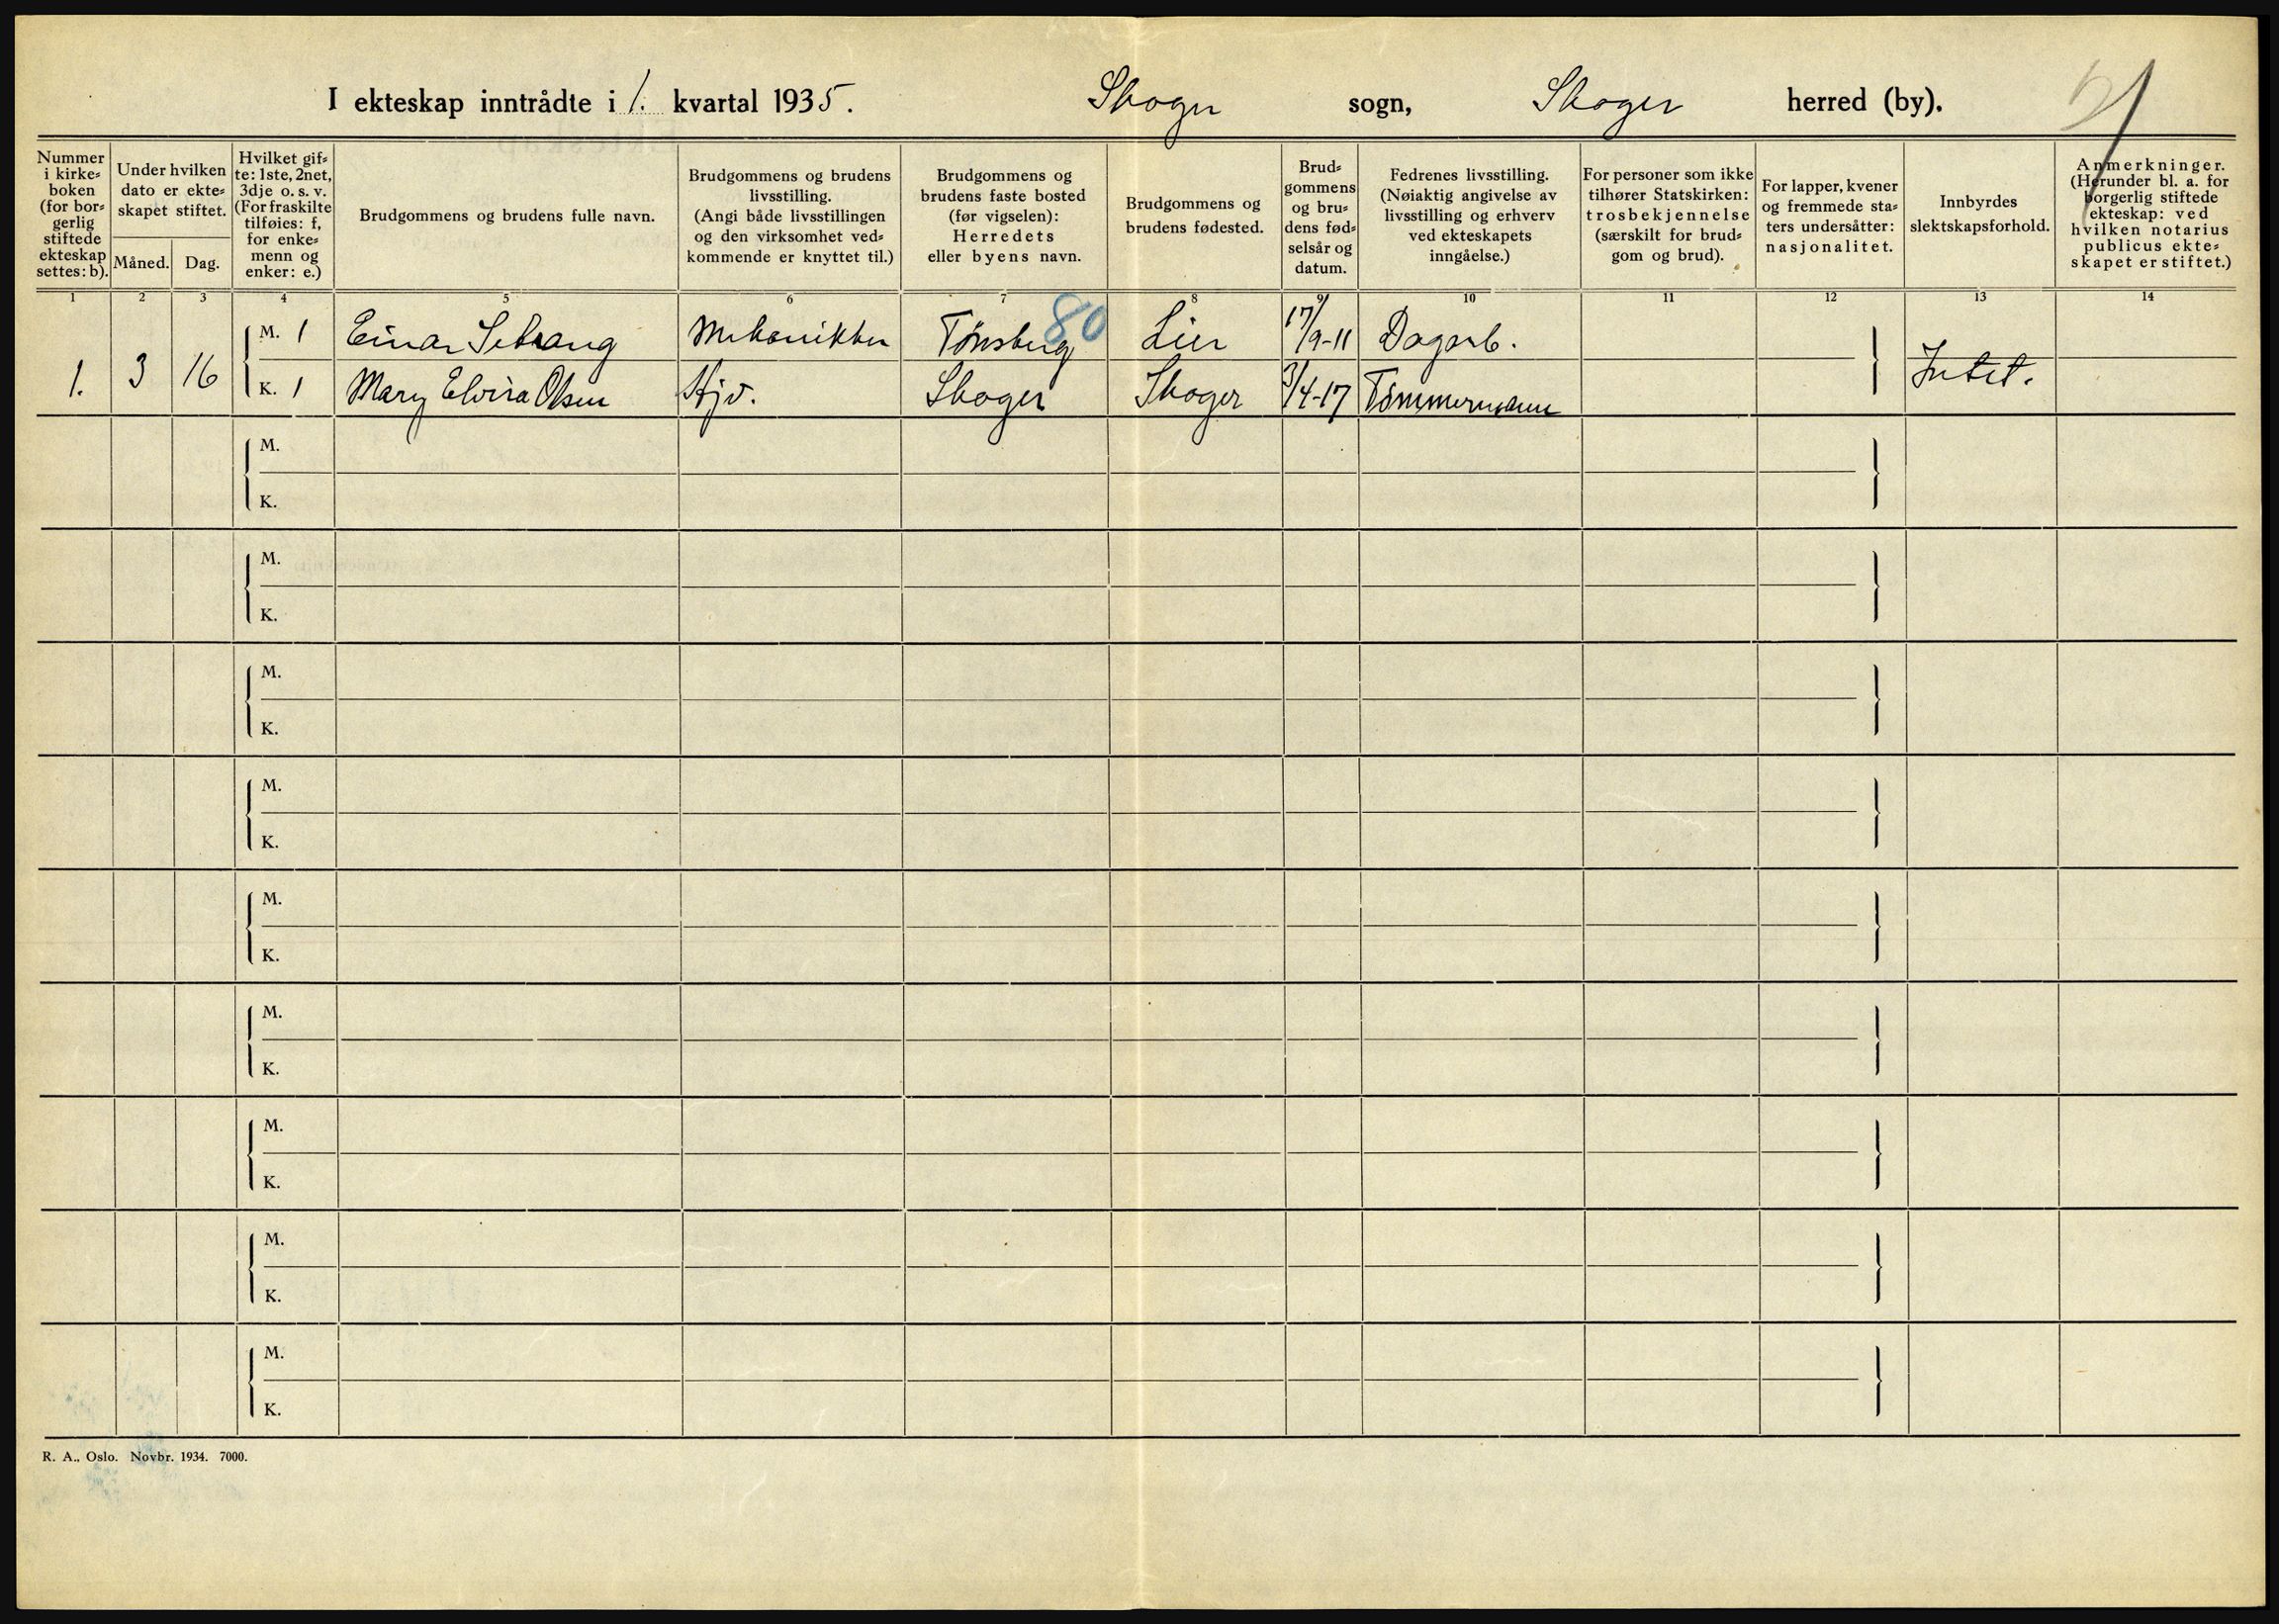 I ekteskap inntrådte i 1. kvartal 1935. Skoger sogn, Skoger herred (by).
Nummer i kirke= boken (for bor= gerlig stiftede ekteskap settes: b).
Under hvilken dato er ekte= skapet stiftet.
Måned.
Dag.
Hvilket gif= te: 1ste, 2net, 3dje o. s. v. (For fraskilte tilføies: f, for enke= menn og enker: e.)
Brudgommens og brudens fulle navn.
Brudgommens og brudens livsstilling. (Angi både livsstillingen og den virksomhet ved= kommende er knyttet til.)
Brudgommens og brudens faste bosted (før vigselen): Herredets eller byens navn.
Brudgommens og brudens fødested.
Brud= gommens og bru= dens fød= selsår og datum.
Fedrenes livsstilling. (Nøiaktig angivelse av livsstilling og erhverv ved ekteskapets inngåelse.)
For personer som ikke tilhører Statskirken: trosbekjennelse (særskilt for brud= gom og brud).
For lapper, kvener og fremmede sta= ters undersåtter: nasjonalitet.
Innbyrdes slektskapsforhold.
Anmerkninger. (Herunder bl. a. for borgerlig stiftede ekteskap: ved hvilken notarius publicus ekte= skapet er stiftet.)
1 2 3 4 5 6 7 8 9 10 11 12 13 14
80
M. 1 Einar Mekanikker Tønsberg Lier 17/9-11 Dagarb.
1. 3 16 Intet.
K. 1 Mary Elvira Olsen Hjv. Skoger Skoger 3/4-17 Tømmermann
M.
K.
M.
K.
M.
K.
M.
K.
M.
K.
M.
K.
M.
K.
M.
K.
M.
K.
R. A., Oslo. Novbr. 1934. 7000.